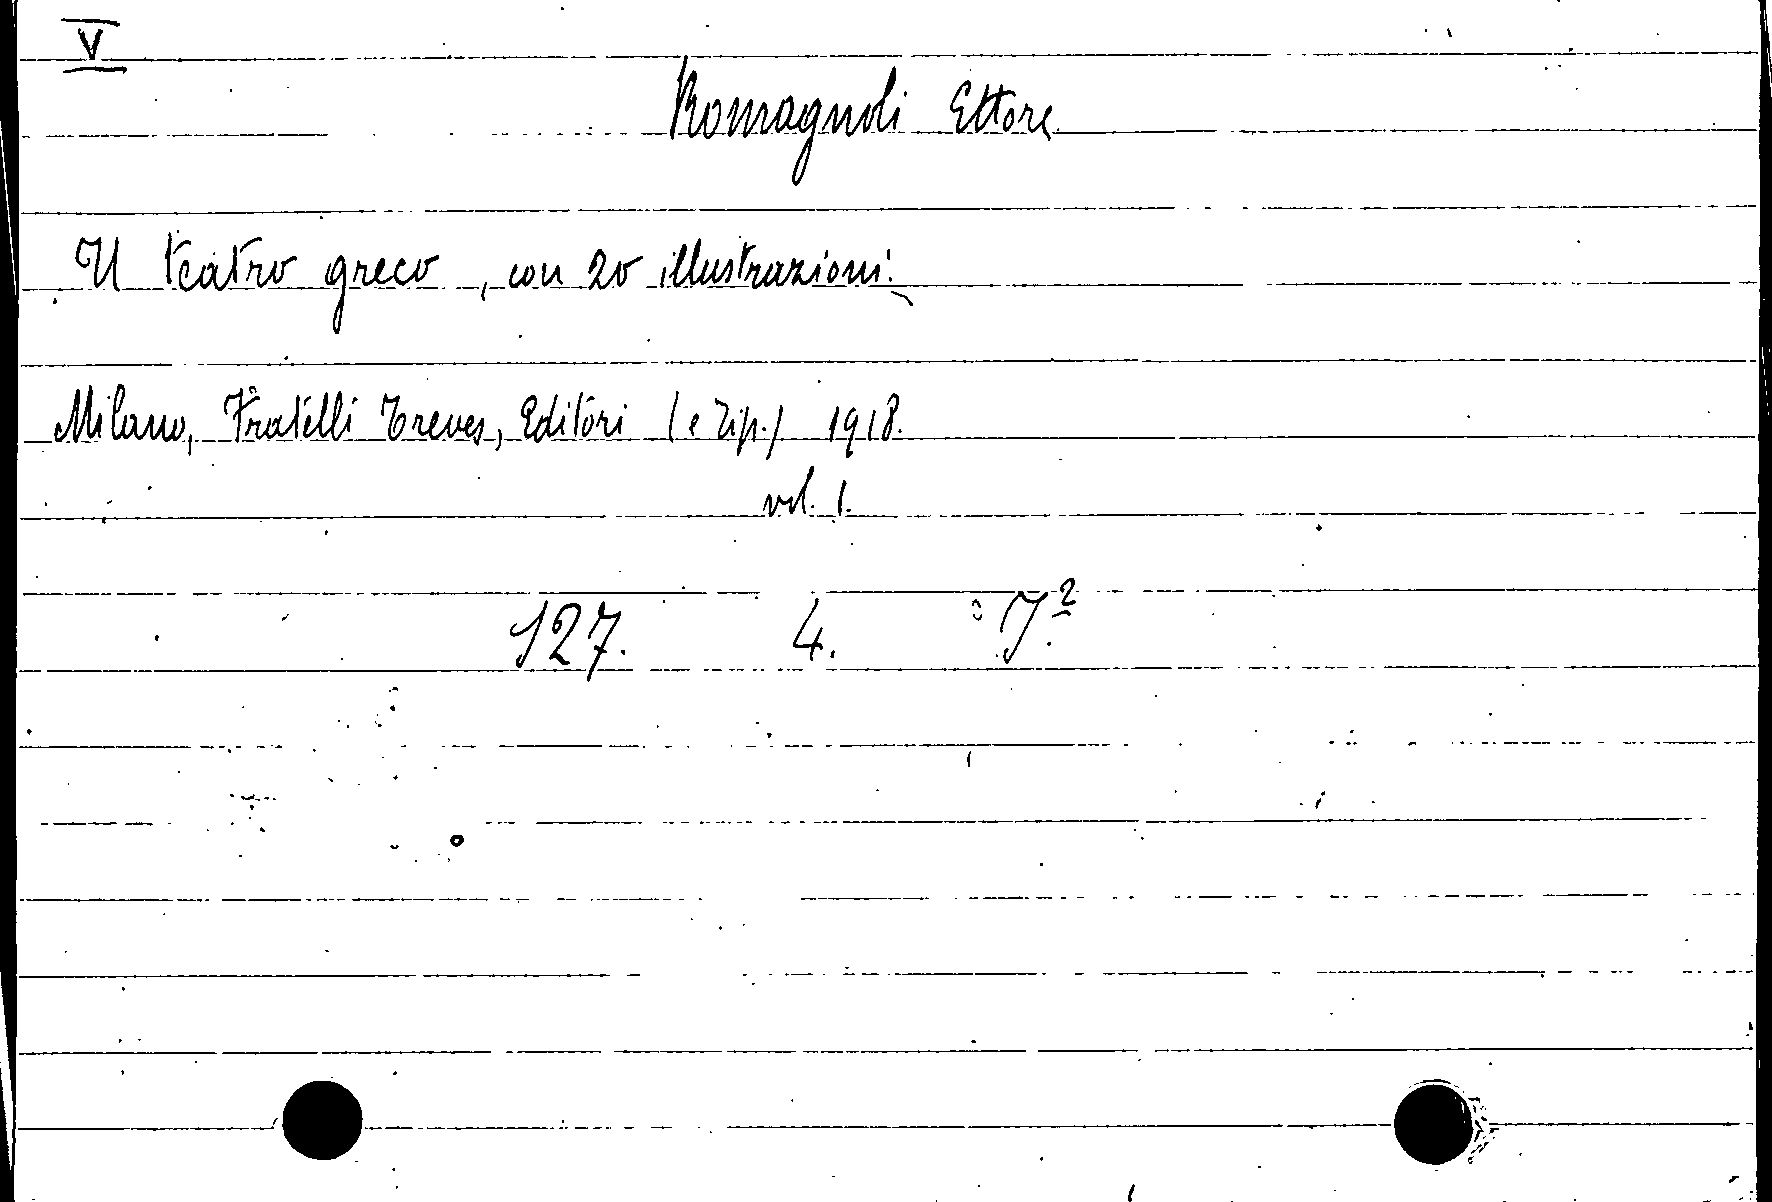 V
Romagnoli Ettore
Il teatro greco, con 20 illustrazioni.
Milano, Fratelli Treves, Editori (e Tip.) 1918.
vol. 1.
127. 4. J.²